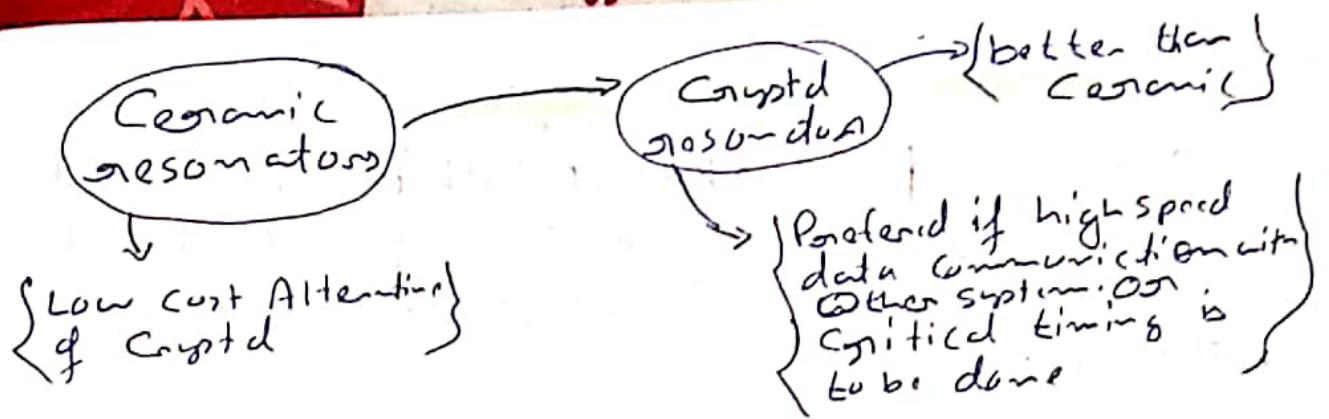 Ceramic
resonators
Crystal
resonator
better than
Ceramic
Low cost Alternative
of Crystal
Prefered if high speed
data communiction with
Other system. or
Critical timing is
to be done